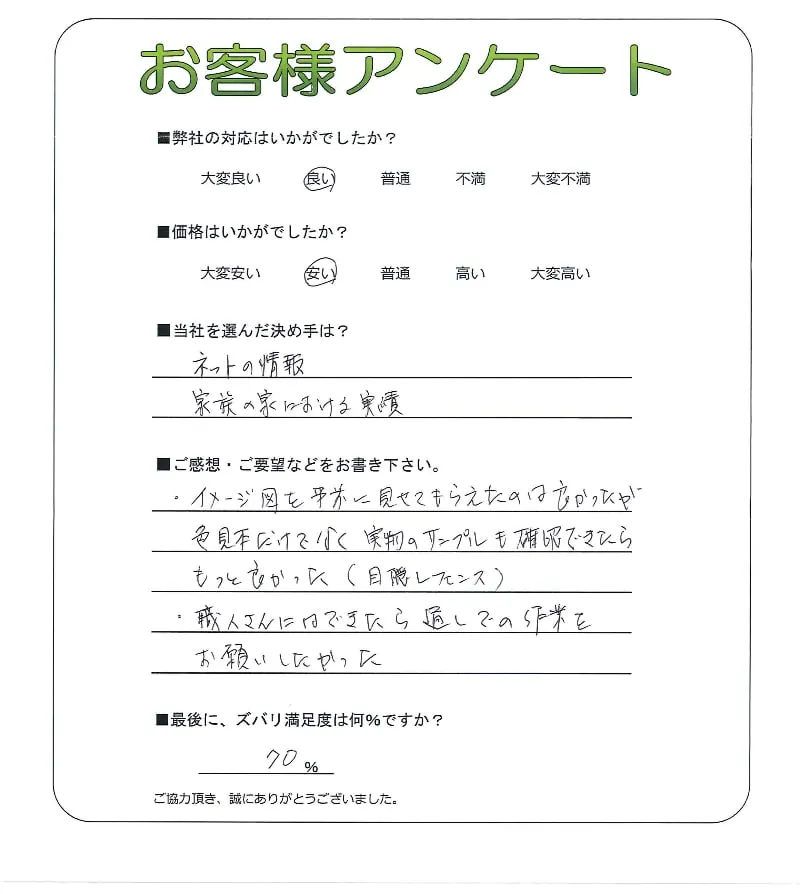 お客様アンケート
■弊社の対応はいかがでしたか？
大変良い 良い 普通 不満 大変不満
■価格はいかがでしたか？
大変安い 安い 普通 高い 大変高い
■当社を選んだ決め手は？
ネットの情報
家族の家における実績
■ご感想・ご要望などをお書き下さい。
・イメージ図を に見せてもらえたのは良かったが
色見本だけでなく 実物のサンプルも確認できたら
もっと良かった（目隠しフェンス）
・職人さんにはできたら通しでの作業を
お願いしたかった
■最後に、ズバリ満足度は何%ですか？
70 %
ご協力頂き、誠にありがとうございました。